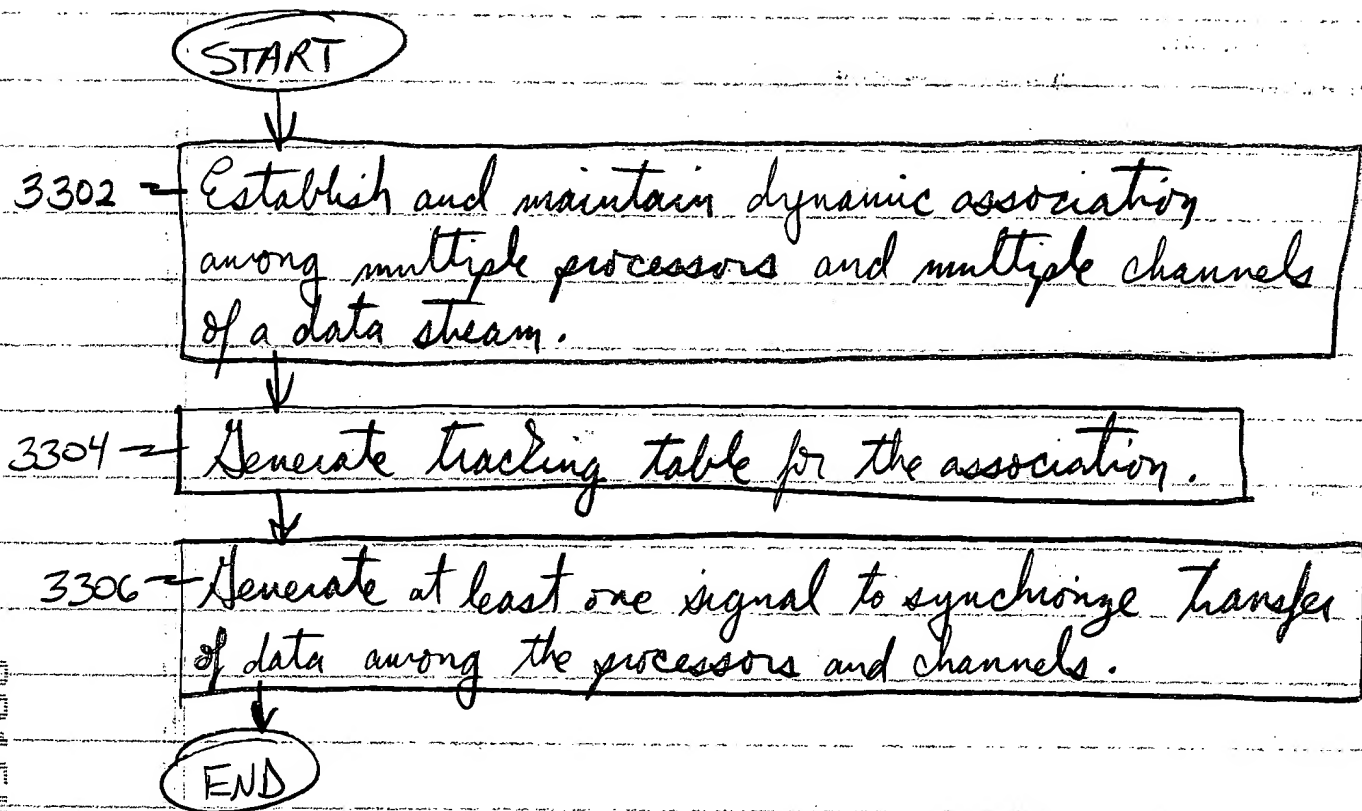 START
3302 Establish and maintain dynamic association
among multiple processors and multiple channels
of a data stream.
3304 Generate tracking table for the association.
3306 Generate at least one signal to synchronize transfer
of data among the processors and channels.
END